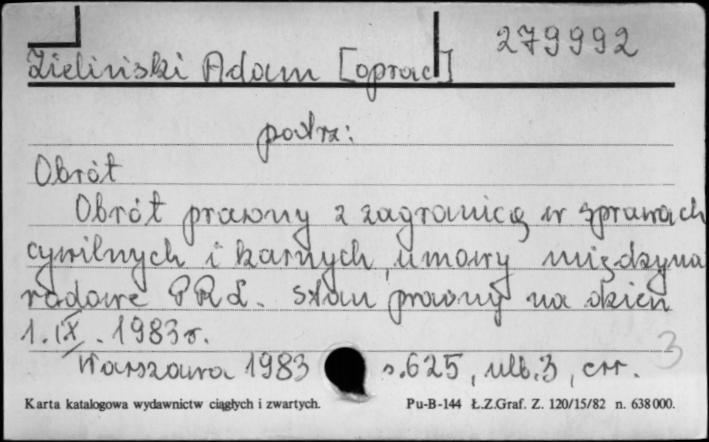 279992
Zieliński Adam [oprac]
patrz:
Obrót
Obrót prawny z zagranicą w sprawach
cywilnych i karnych, umowy międzyna
rodowe PRL. Stan prawny na dzień
1.IX.1983r.
Warszawa 1983 s.625, ulb.3, err.
3
Karta katalogowa wydawnictw ciągłych i zwartych. Pu-B-144 Ł.Z.Graf. Z. 120/15/82 n. 638000.